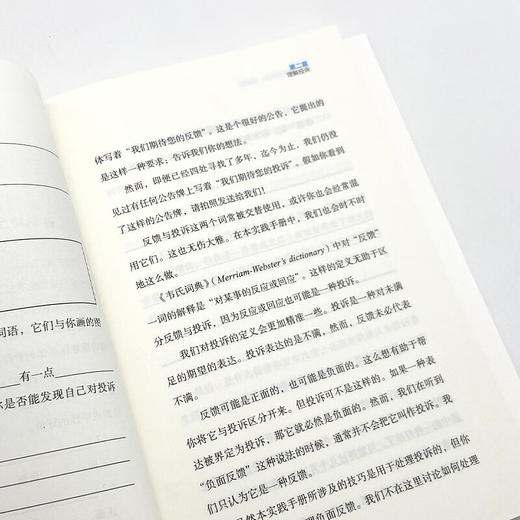 词语，它们与你画的图
有一点
是否能发现自己对投诉
第二章
理解投诉
体写着“我们期待您的反馈”。这是个很好的公告，它提出的
是这样一种要求：告诉我们你的想法。
然而，即便已经四处寻找了多年，迄今为止，我们仍没
见过有任何公告牌上写着“我们期待您的投诉”。假如你看到
了这样的公告牌，请拍照发送给我们！
反馈与投诉这两个词常被交替使用，或许你也会经常混
用它们。这也无伤大雅。在本实践手册中，我们也会时不时
地这么做。
《韦氏词典》（Merriam-Webster's dictionary）中对“反馈”
一词的解释是“对某事的反应或回应”。这样的定义无助于区
分反馈与投诉，因为反应或回应也可能是一种投诉。
我们对投诉的定义会更加精准一些。投诉是一种对未满
足的期望的表达。投诉表达的是不满，然而，反馈未必代表
不满。
反馈可能是正面的，也可能是负面的。这么想有助于帮
你将它与投诉区分开来。但投诉可不是这样的。如果一种表
达被界定为投诉，那它就必然是负面的。然而，我们在听到
“负面反馈”这种说法的时候，通常并不会把它叫作投诉。我
们只认为它是一种反馈。
然本实践手册所涉及的技巧是用于处理投诉的，但你
理负面反馈。我们不在这里讨论如何处理